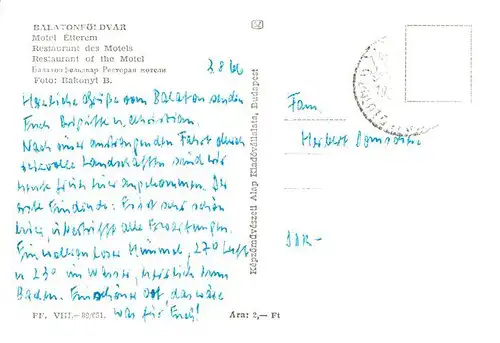 BALATONFÖLDVÁR
Motel Étterem
Restaurant des Motels
Restaurant of the Motel
Балатонфельдвар Ресторан мотеля
Foto: Bakonyi B.
3.8.66
Herzliche Grüße vom Balaton senden
Euch Brigitte u. Christian.
Nach einer anstrengenden Fahrt durch
reizvolle Landschaften sind wir
heute früh hier angekommen. Der
erste Eindruck: Es ist sehr schön
hier, übertrifft alle Erwartungen.
Ein wolkenloser Himmel, 27° Luft
u 23° im Wasser, herrlich zum
Baden. Ein schöner Ort, das wäre
was für Euch!
FF. VIII.
Ára: 2,— Ft
Képzőművészeti Alap Kiadóvállalata, Budapest
Fam.
Herbert
DDR-